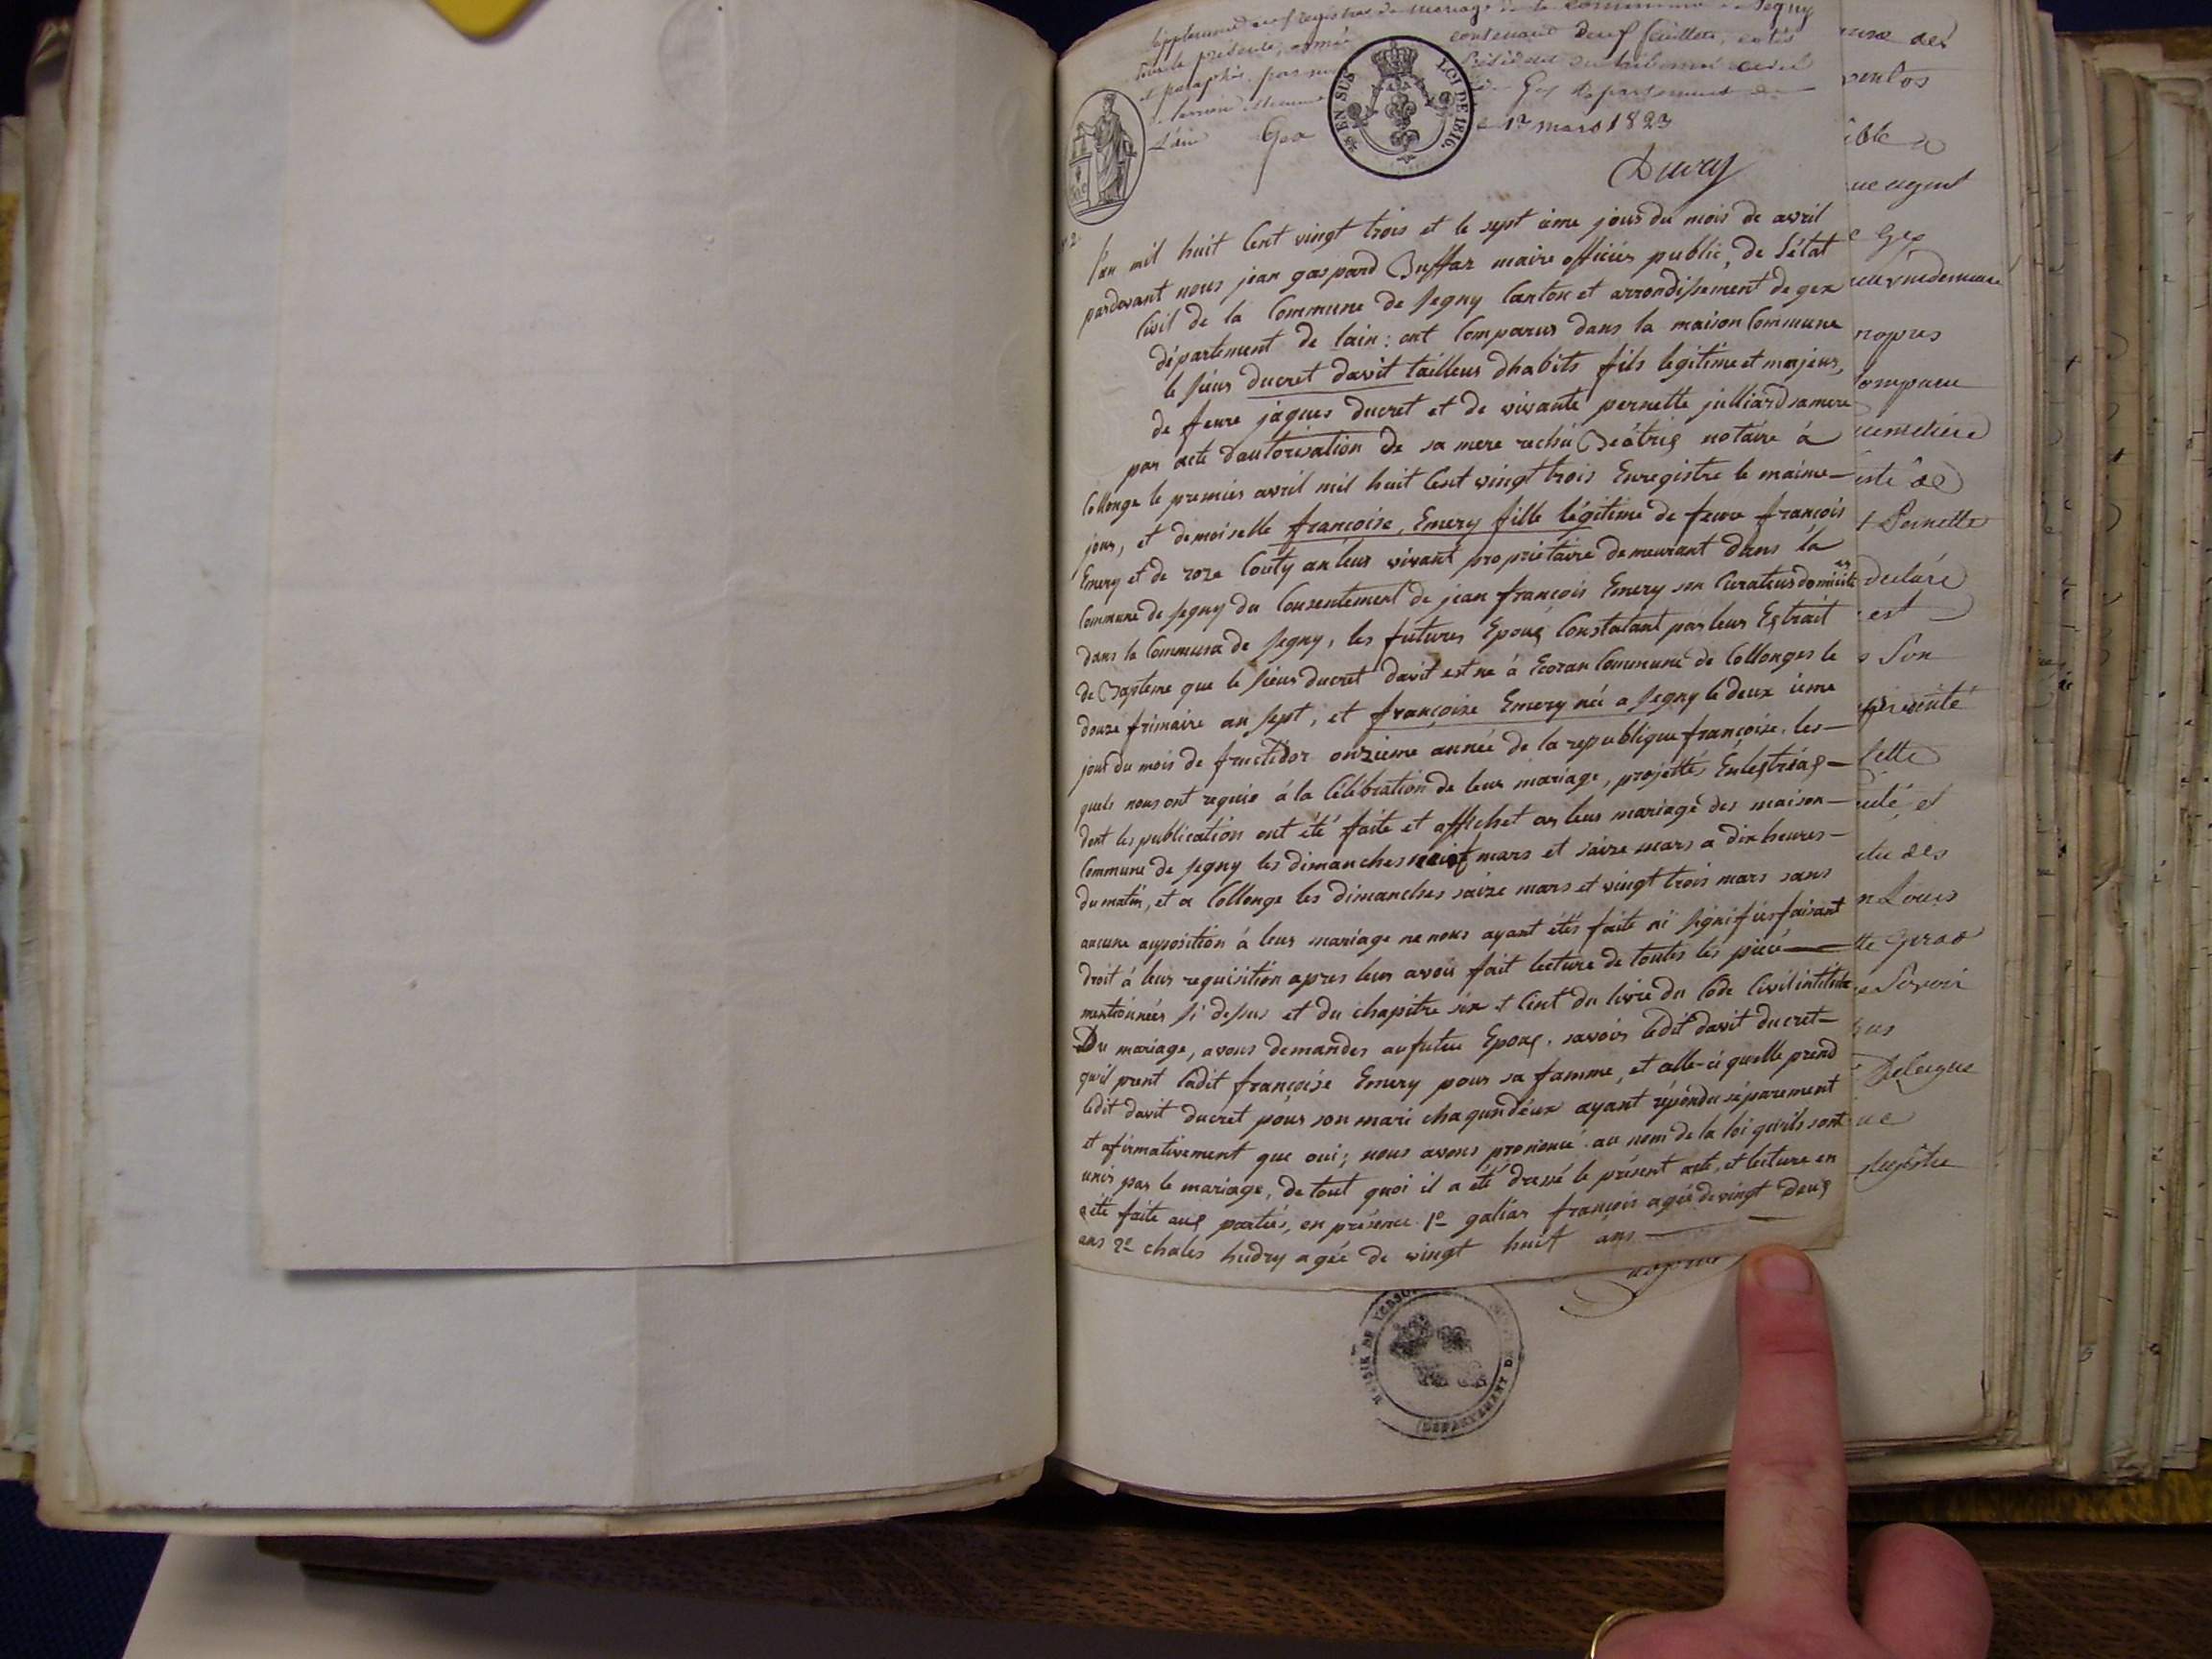 Supplement au registre de mariage de la commune de Segny
pour le présente, année contenant deux feuillets, cotés
et paraphé par nous Président du tribunal civil
Gex département de
L'ain Gex le 1r mars 1823
EN SUS
LOI DE 1816.
Duvay
N. 2.
L'an mil huit Cent vingt trois et le sept ième jour du mois de avril
pardevant nous jean gaspard Buffaz maire officier public, de l'état
Civil de la Commune de Segny Canton et arrondissement de gex
département de lain : ont Comparus dans la maison Commune
le sieur ducret davit tailleur dhabits fils legitime et majeur,
de feure jaques ducret et de vivante pernette julliard sa mere
par acte dautorisation de sa mere rechu Béatrix notaire à
Collonge le premier avril mil huit Cent vingt trois Enregistre le maime —
jour, et demoiselle françoise, Emery fille légitime de feure françois
Emery et de roze Couty an leur vivant proprietaire demeurant dans la
Commune de Segny du Consentement de jean françois Emery son Curateur domicile
es
dans la Commune de Segny, les futures Epoux Constatant par leur Extrait
de Bapteme que le sieur ducret davit est ne à Ecoran Commune de Collonges le
douze frimaire an sept, et françoise Emery née a Segny le deux ieme
jour du mois de fructidor onzieme année de la republique françoise, les —
quels nous ont requis á la Célébration de leur mariage, projettés Entre
dont les publication ont été faite et affichet
mariage des maison —
Commune de Segny les dimanches neuf mars et saize mars a dix heures —
du matin, et a Collonge les dimanches saize mars et vingt trois mars sans
aucune aupposition à leur mariage ne nous ayant étés faite ni signifier faisant
droit à leur requisition apres leur avoir fait lecture de toutes les piecé —
mentionnées si desus et du chapitre six
du livre du Code Civil intitule
Du mariage, avons demandes au future Epoux, savoir ledit davit ducret —
qu'il prent ladit françoise Emery pour sa famme, et celle-ci quelle prend
ledit davit ducret pour son mari chaqun d'eux ayant répondu séparement
et afirmativement que oui ; nous avons prononcé au nom de la loi qu'ils sont
unir par le mariage, de tout quoi il a été dressé le présent acte, et lecture en
a été faite aux parties, en présence 1º galias françois agée de vingt deux
ans 2º chales hudry agée de vingt huit ans —
MAIRIE DE VERSO
DEPARTEMENT DE